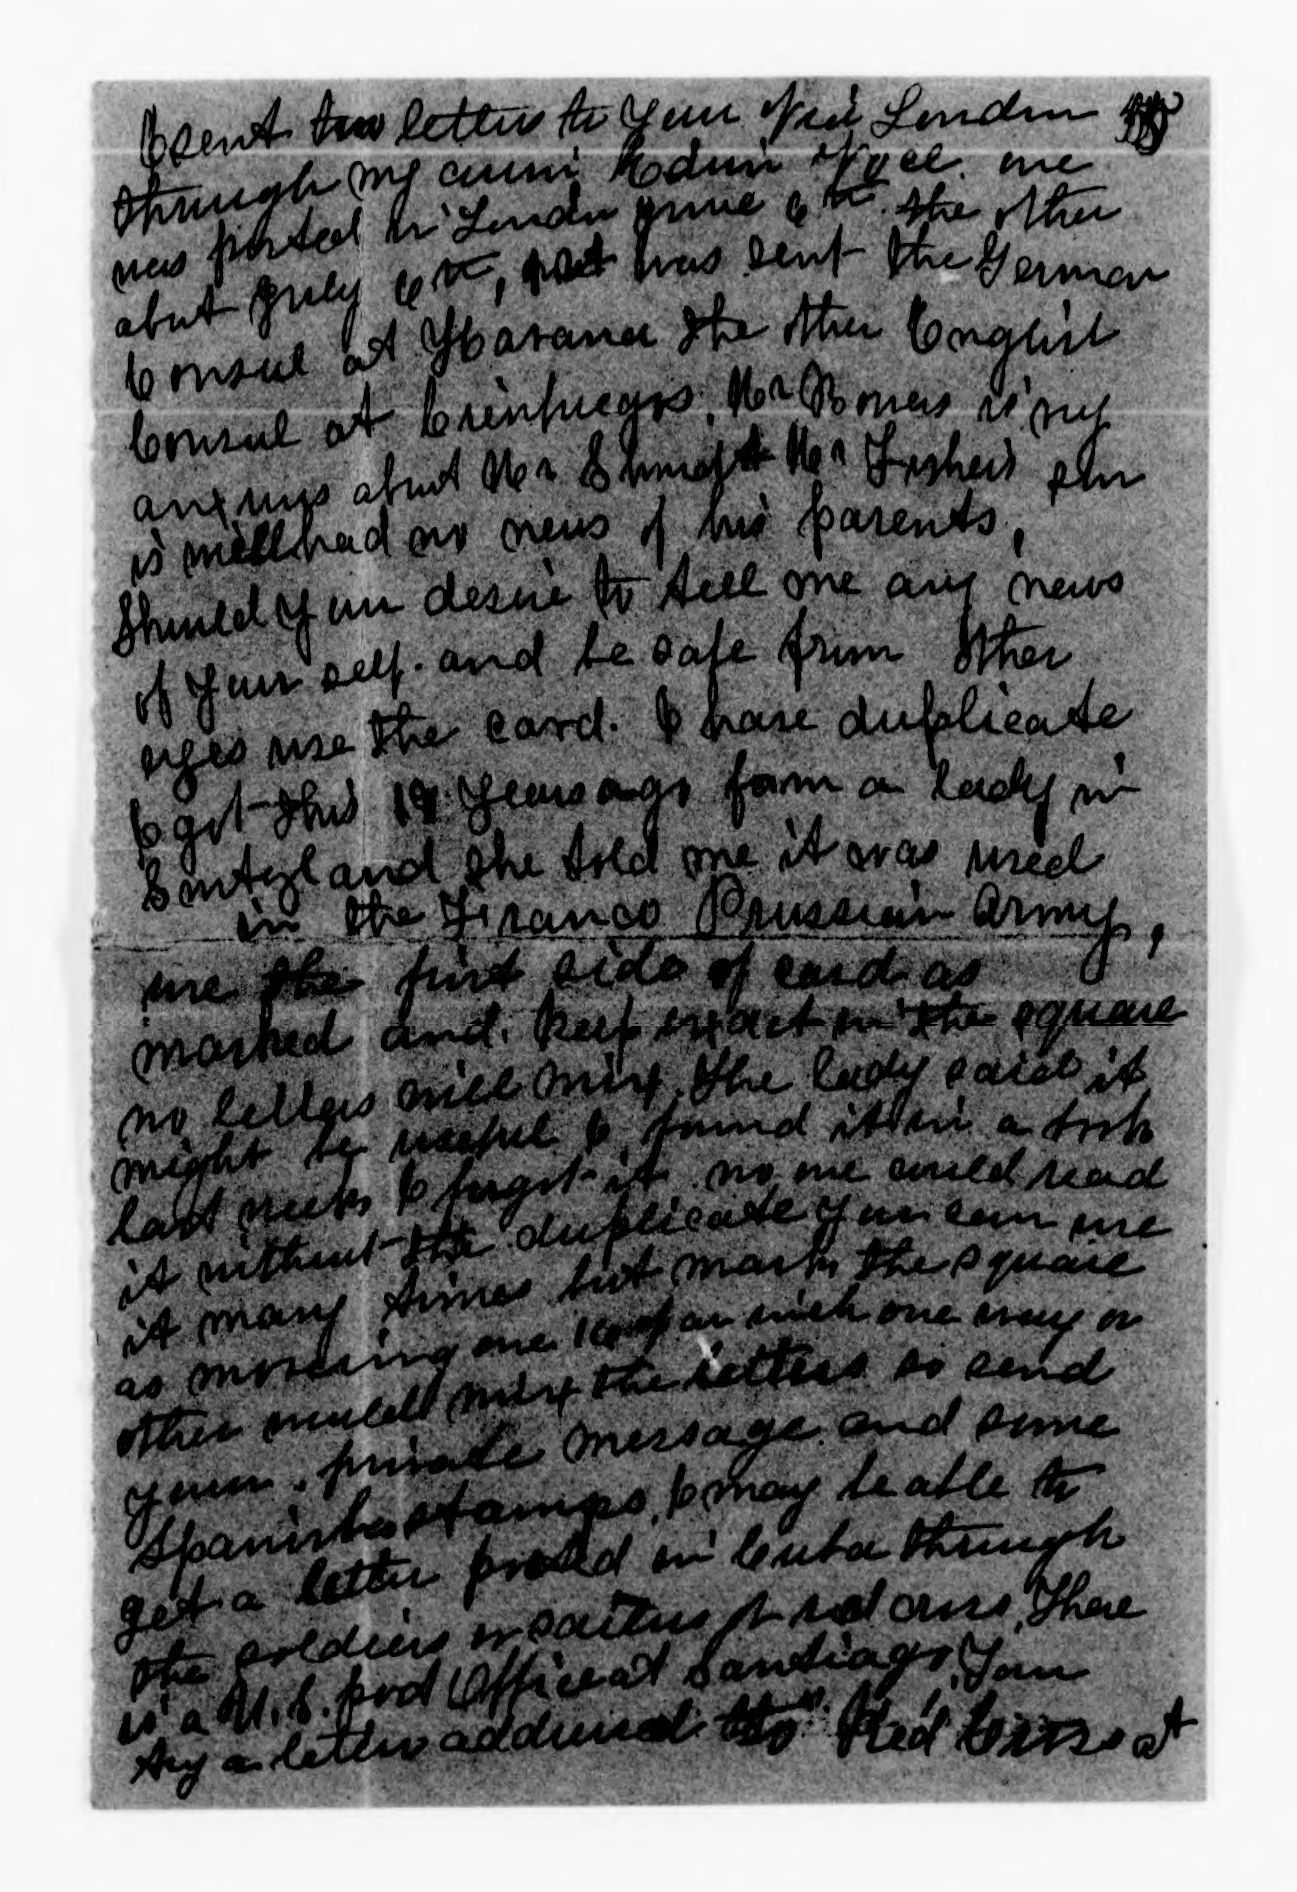 I sent two letters to you Via London
through my cousin Edwin one
was posted in London June 6th the other
about July 6th, was sent the German
Consul at Havana the other English
Consul at Cienfuegos. Mr is very
anxious about Mr Shmidt Mr Fishers son
is well had no news of his parents,
Should you desire to tell me any news
of your self. and be safe from other
eyes use the card. I have duplicate
I got this 19 years ago from a lady in
and she told me it was used
in the Franco Prussian Army,
use the first side of card as
marked and keep exact in the square
no letters will mix. The lady said it
might be useful I found it in a book
last week I forgot it. no one could read
it without the duplicate you can use
it many times but mark the square
as moving one an inch one way or
other would mix the letters so send
your private message and some
Spanish stamps. I may be able to
get a letter posted in Cuba through
the soldiers or sailors or red cross. There
is a U.S. post Office at Santiago. You
try a letter addressed to "Red Cross at